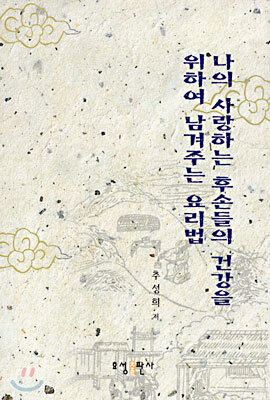 나의 사랑하는 후손들의 건강을
위하여 남겨주는 요리법
추성희 저
효성출판사